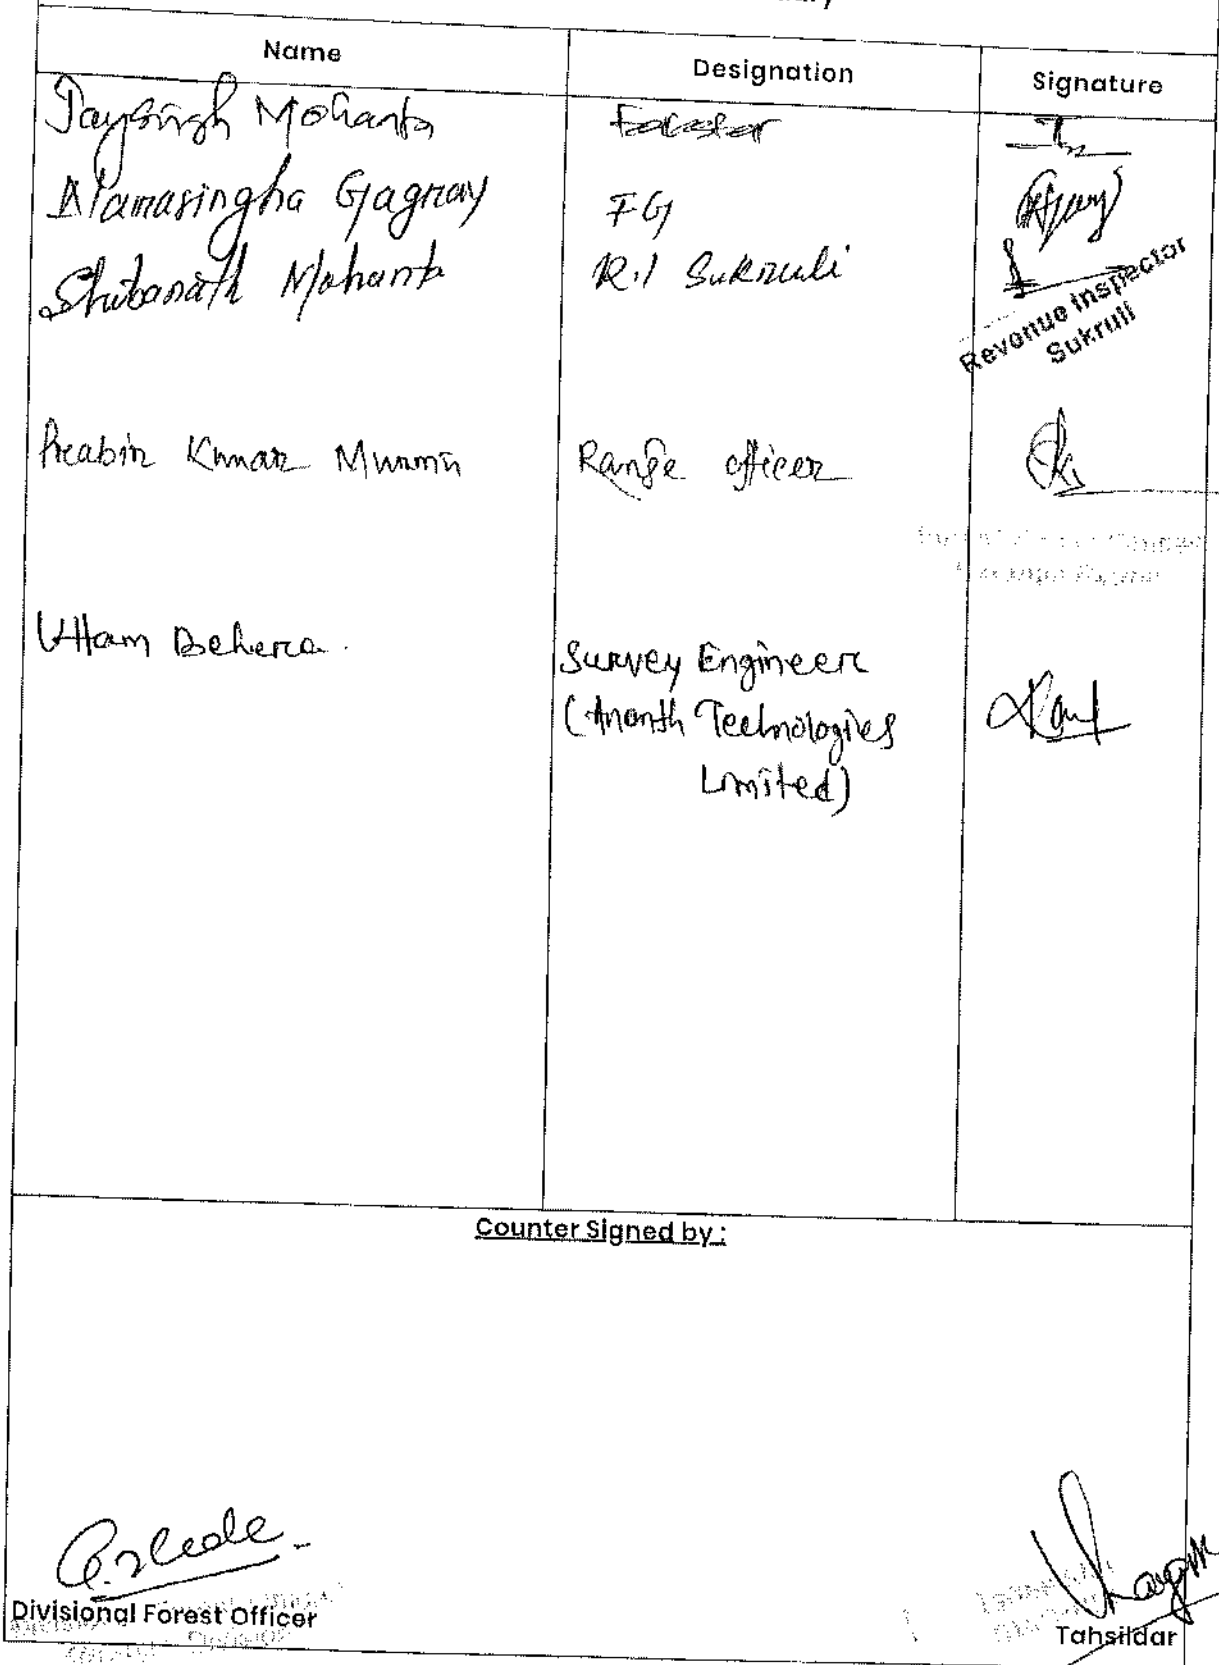 Name Designation Signature
Jaysingh Mohanta Forester
Narasingha Gagray FG
Shibanath Mohanta R.I Sukruli
Revenue Inspector
Sukruli
Prabir Kumar Murmu Range officer
Uttam Behera.
Survey Engineer
(Ananth Technologies
Limited)
Counter Signed by :
Divisional Forest Officer
Tahsildar